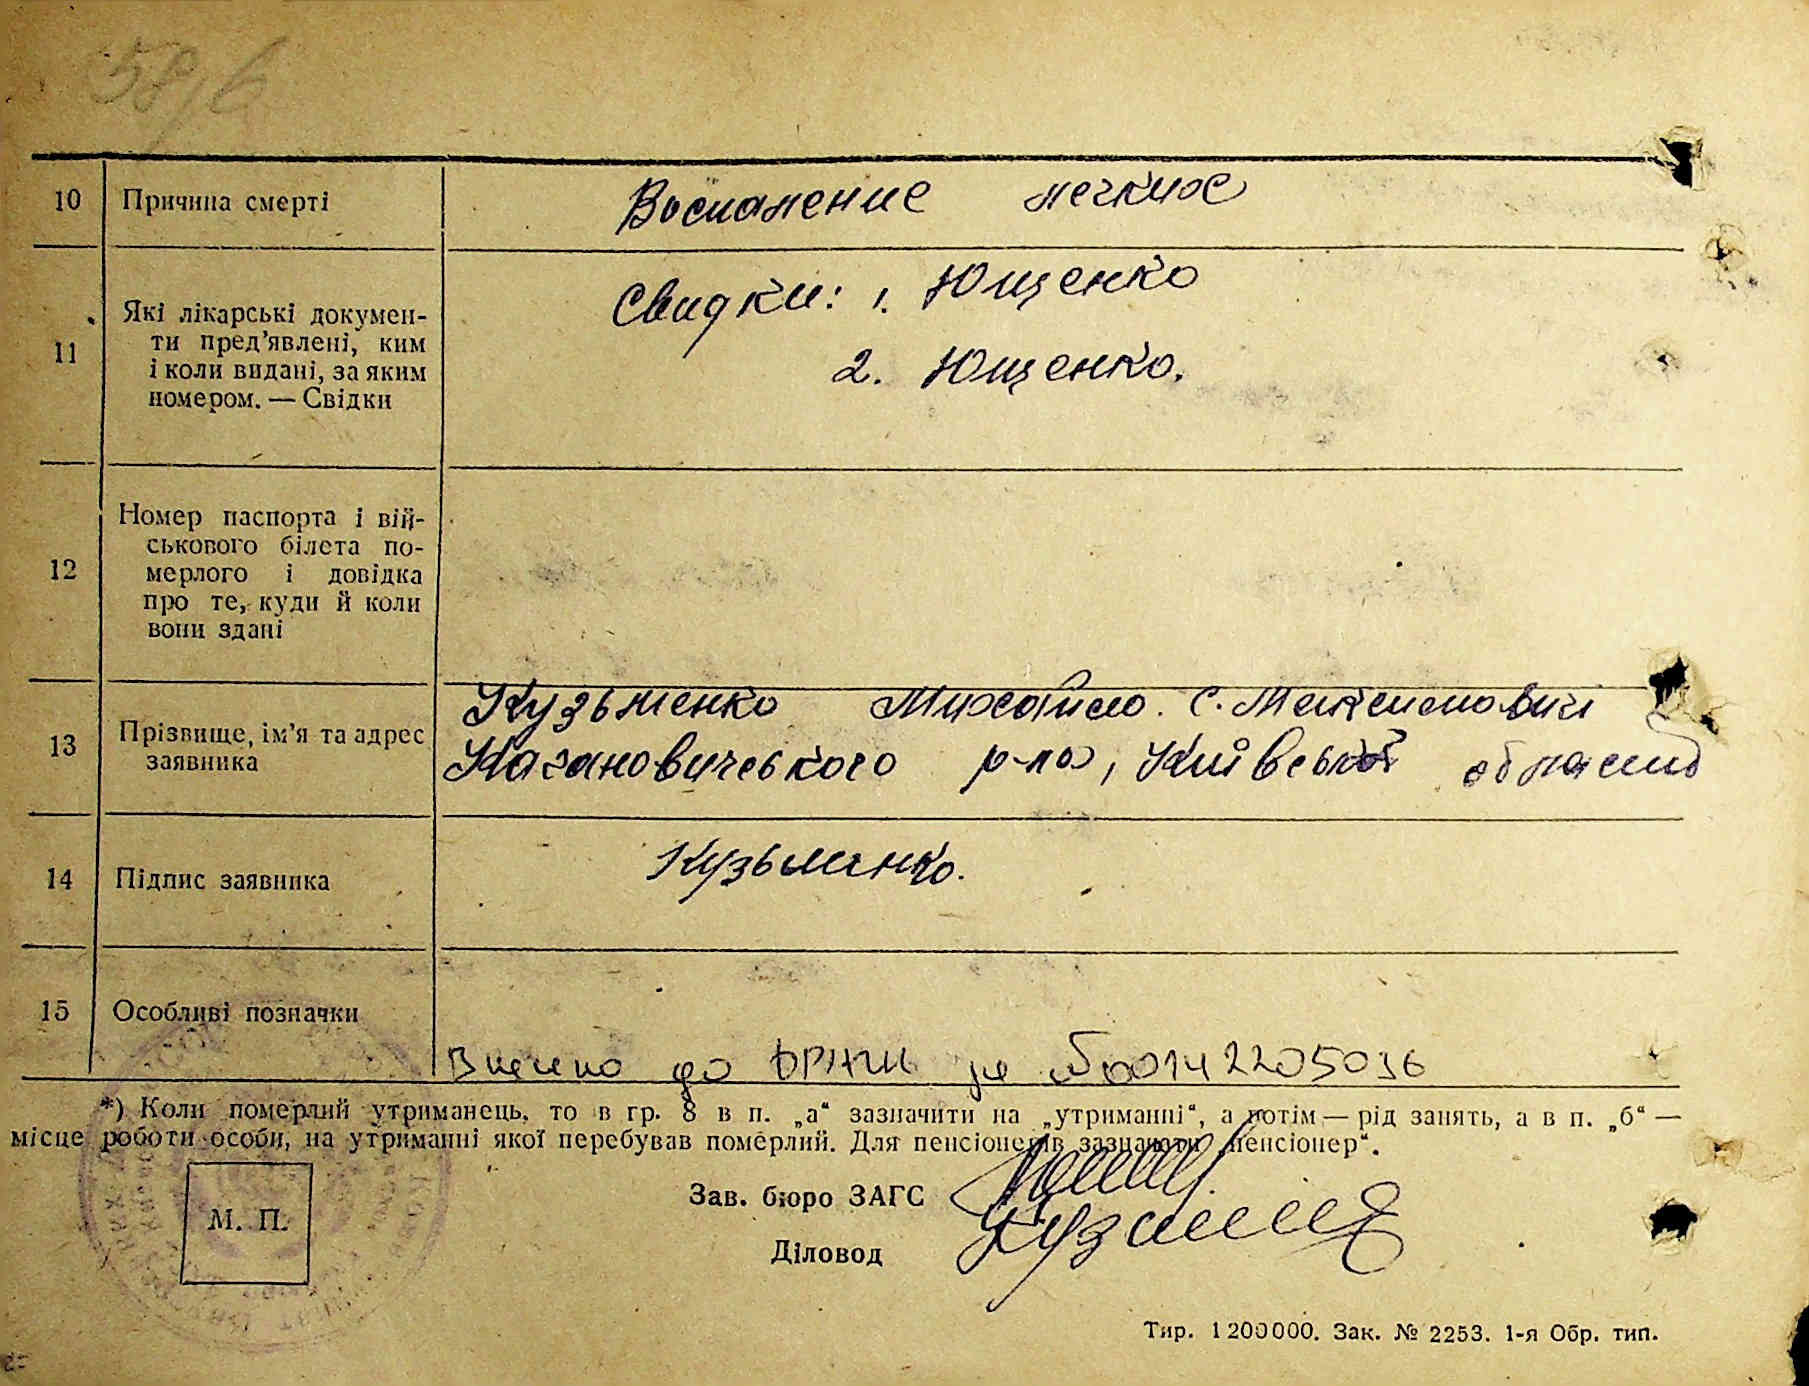 58/6
10 Причина смерті Воспаление легкие
11 Які лікарські докумен-
ти пред’явлені, ким
і коли видані, за яким
номером. — Свідки
Свидки: 1. Ющенко
2. Ющенко.
12 Номер паспорта і вій-
ськового білета по-
мерлого і довідка
про те, куди й коли
вони здані
13 Прізвище, ім’я та адрес
заявника
Кузьменко Михайло. С. Максимовичі
Кагановичеського р-на, Київської області
14 Підпис заявника Кузьменко.
15 Особливі позначки
Внесено до ДРАЦС за №00142205036
*) Коли померлий утриманець, то в гр. 8 в п. „а“ зазначити на „утриманні“, а потім — рід занять, а в п. „б“ —
місце роботи особи, на утриманні якої перебував померлий. Для пенсіонерів зазначати „пенсіонер“.
М. П.
Зав. бюро ЗАГС
Діловод
Тир. 1200000. Зак. № 2253. 1-я Обр. тип.